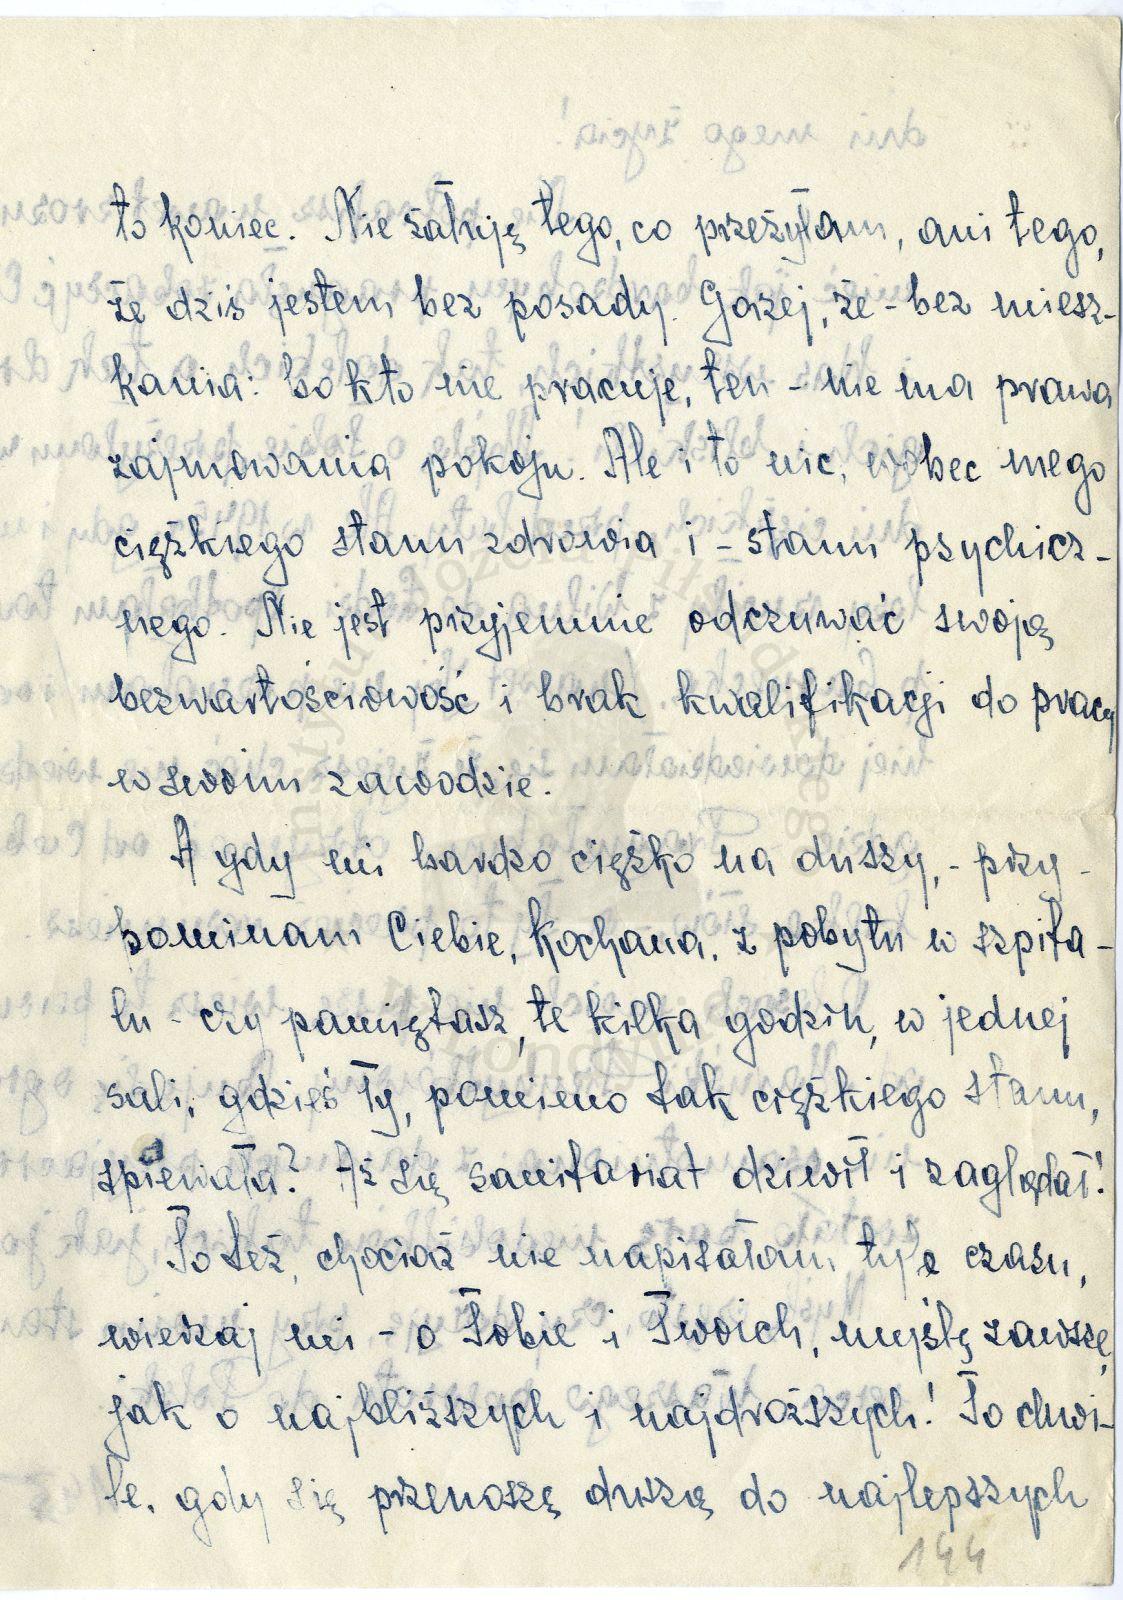 to koniec. Nie żałuję tego, co przeżyłam, ani tego,
że dziś jestem bez posady. Gorzej, że - bez miesz-
kania: bo kto nie pracuje, ten - nie ma prawa
zajmowania pokoju. Ale i to nic, wobec mego
ciężkiego stanu zdrowia i - stanu psychicz-
nego. Nie jest przyjemnie odczuwać swoją
bezwartościowość i brak kwalifikacji do pracy
w swoim zawodzie.
A gdy mi bardzo ciężko na duszy, - przy-
pominam Ciebie, Kochana, z pobytu w szpita-
lu - czy pamiętasz, te kilka godzin, w jednej
sali, gdzieś Ty, pomimo tak ciężkiego stanu,
śpiewała? Aż się sanitariat dziwił i zaglądał!
To też, chociaż nie napisałam tyle czasu,
wierzaj mi - o Tobie i Twoich, myślę zawsze,
jak o najbliższych i najdroższych! To chwi-
le, gdy się przenoszę duszą do najlepszych
144
Instytut Józefa Piłsudskiego
w Londynie